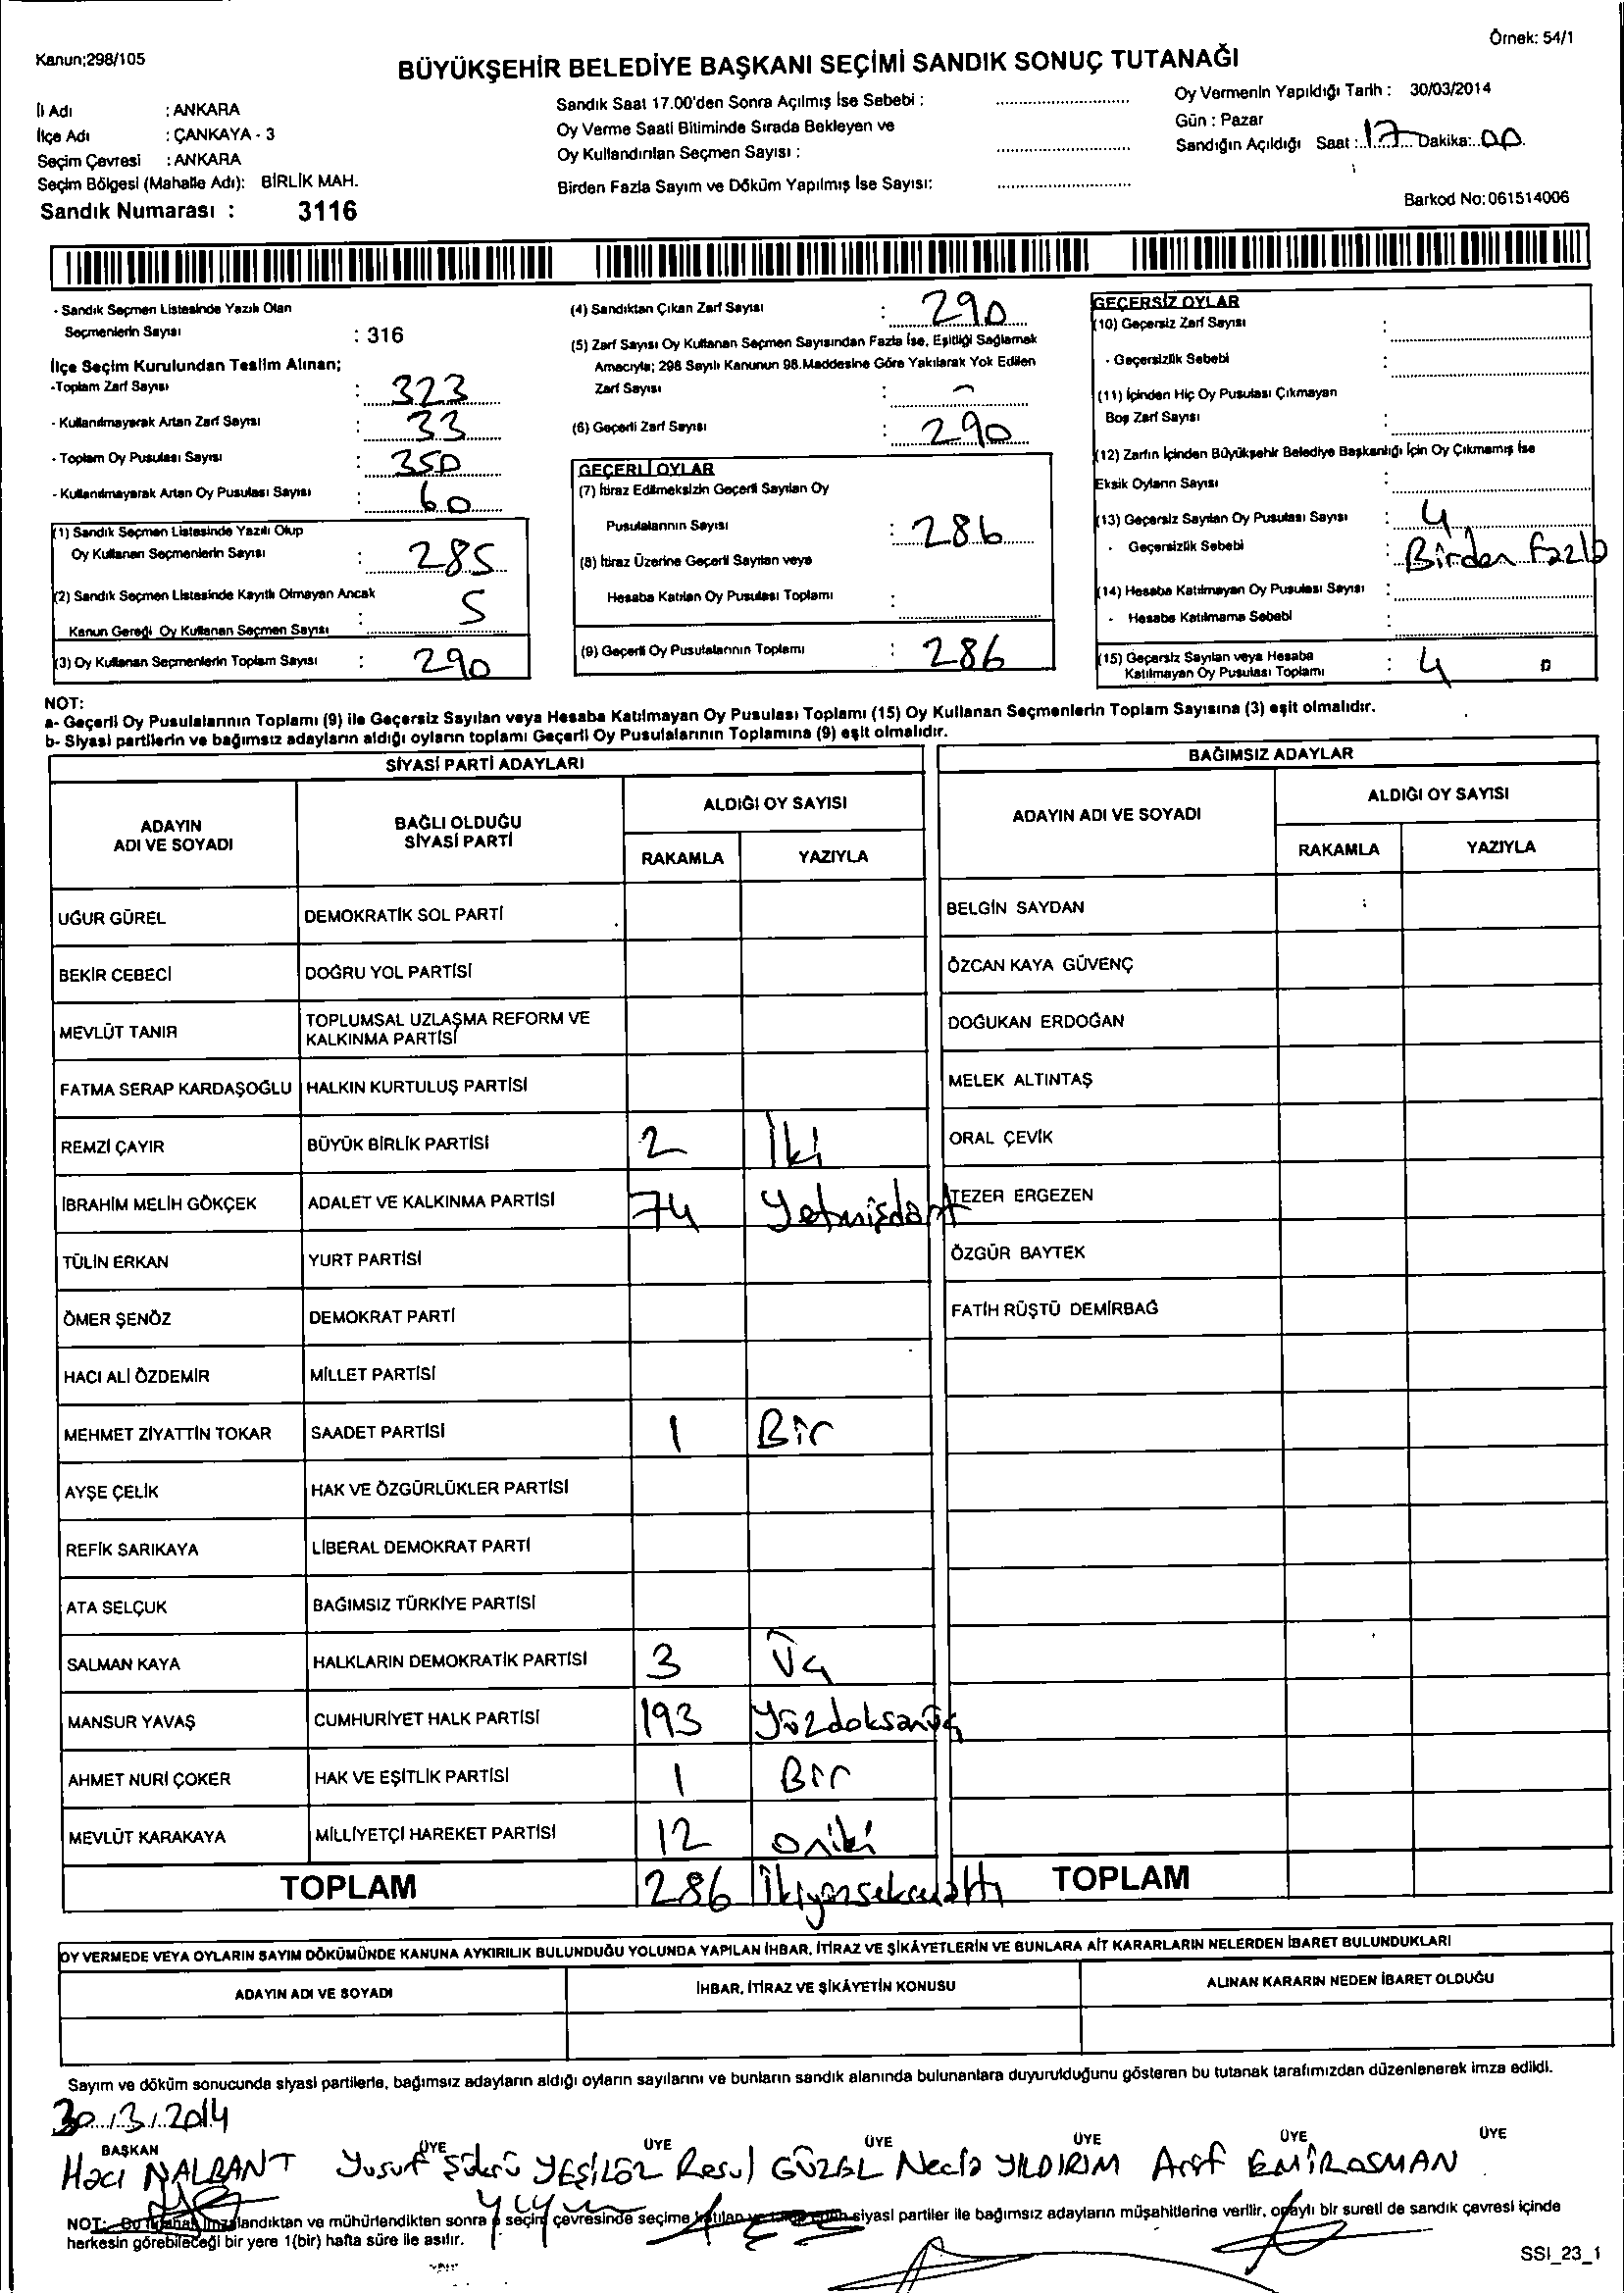 Örnek: 54/1
Kanun;298/105
BÜYÜKŞEHİR BELEDİYE BAŞKANI SEÇİMİ SANDIK SONUÇ TUTANAĞI
İl Adı : ANKARA
İlçe Adı : ÇANKAYA - 3
Seçim Çevresi : ANKARA
Seçim Bölgesi (Mahalle Adı): BİRLİK MAH.
Sandık Numarası : 3116
Sandık Saat 17.00'den Sonra Açılmış İse Sebebi :
Oy Verme Saati Bitiminde Sırada Bekleyen ve
Oy Kullandırılan Seçmen Sayısı :
Birden Fazla Sayım ve Döküm Yapılmış İse Sayısı:
Oy Vermenin Yapıldığı Tarih : 30/03/2014
Gün : Pazar
Sandığın Açıldığı Saat : 17 Dakika: 00
Barkod No: 061514006
- Sandık Seçmen Listesinde Yazılı Olan
Seçmenlerin Sayısı : 316
İlçe Seçim Kurulundan Teslim Alınan;
-Toplam Zarf Sayısı : 323
- Kullanılmayarak Artan Zarf Sayısı : 33
- Toplam Oy Pusulası Sayısı : 350
- Kullanılmayarak Artan Oy Pusulası Sayısı : 60
(1) Sandık Seçmen Listesinde Yazılı Olup
Oy Kullanan Seçmenlerin Sayısı : 285
(2) Sandık Seçmen Listesinde Kayıtlı Olmayan Ancak
Kanun Gereği Oy Kullanan Seçmen Sayısı : 5
(3) Oy Kullanan Seçmenlerin Toplam Sayısı : 290
(4) Sandıktan Çıkan Zarf Sayısı : 290
(5) Zarf Sayısı Oy Kullanan Seçmen Sayısından Fazla İse, Eşitliği Sağlamak
Amacıyla; 298 Sayılı Kanunun 98.Maddesine Göre Yakılarak Yok Edilen
Zarf Sayısı : -
(6) Geçerli Zarf Sayısı : 290
GEÇERLİ OYLAR
(7) İtiraz Edilmeksizin Geçerli Sayılan Oy
Pusulalarının Sayısı : 286
(8) İtiraz Üzerine Geçerli Sayılan veya
Hesaba Katılan Oy Pusulası Toplamı :
(9) Geçerli Oy Pusulalarının Toplamı : 286
GEÇERSİZ OYLAR
(10) Geçersiz Zarf Sayısı :
- Geçersizlik Sebebi :
(11) İçinden Hiç Oy Pusulası Çıkmayan
Boş Zarf Sayısı :
(12) Zarfın İçinden Büyükşehir Belediye Başkanlığı İçin Oy Çıkmamış İse
Eksik Oyların Sayısı :
(13) Geçersiz Sayılan Oy Pusulası Sayısı : 4
- Geçersizlik Sebebi : Birden fazla
(14) Hesaba Katılmayan Oy Pusulası Sayısı :
- Hesaba Katılmama Sebebi :
(15) Geçersiz Sayılan veya Hesaba
Katılmayan Oy Pusulası Toplamı : 4
NOT:
a- Geçerli Oy Pusulalarının Toplamı (9) ile Geçersiz Sayılan veya Hesaba Katılmayan Oy Pusulası Toplamı (15) Oy Kullanan Seçmenlerin Toplam Sayısına (3) eşit olmalıdır.
b- Siyasi partilerin ve bağımsız adayların aldığı oyların toplamı Geçerli Oy Pusulalarının Toplamına (9) eşit olmalıdır.
SİYASİ PARTİ ADAYLARI
ADAYIN ADI VE SOYADI
BAĞLI OLDUĞU SİYASİ PARTİ
ALDIĞI OY SAYISI
RAKAMLA YAZIYLA
UĞUR GÜREL DEMOKRATİK SOL PARTİ
BEKİR CEBECİ DOĞRU YOL PARTİSİ
MEVLÜT TANIR TOPLUMSAL UZLAŞMA REFORM VE
KALKINMA PARTİSİ
FATMA SERAP KARDAŞOĞLU HALKIN KURTULUŞ PARTİSİ
REMZİ ÇAYIR BÜYÜK BİRLİK PARTİSİ 2 İki
İBRAHİM MELİH GÖKÇEK ADALET VE KALKINMA PARTİSİ 74 Yetmişdört
TÜLİN ERKAN YURT PARTİSİ
ÖMER ŞENÖZ DEMOKRAT PARTİ
HACI ALİ ÖZDEMİR MİLLET PARTİSİ
MEHMET ZİYATTİN TOKAR SAADET PARTİSİ 1 Bir
AYŞE ÇELİK HAK VE ÖZGÜRLÜKLER PARTİSİ
REFİK SARIKAYA LİBERAL DEMOKRAT PARTİ
ATA SELÇUK BAĞIMSIZ TÜRKİYE PARTİSİ
SALMAN KAYA HALKLARIN DEMOKRATİK PARTİSİ 3 Üç
MANSUR YAVAŞ CUMHURİYET HALK PARTİSİ 193 Yüzdoksanüç
AHMET NURİ ÇOKER HAK VE EŞİTLİK PARTİSİ 1 Bir
MEVLÜT KARAKAYA MİLLİYETÇİ HAREKET PARTİSİ 12 oniki
TOPLAM 286 İkiyüzseksenaltı
BAĞIMSIZ ADAYLAR
ADAYIN ADI VE SOYADI
ALDIĞI OY SAYISI
RAKAMLA YAZIYLA
BELGİN SAYDAN
ÖZCAN KAYA GÜVENÇ
DOĞUKAN ERDOĞAN
MELEK ALTINTAŞ
ORAL ÇEVİK
TEZER ERGEZEN
ÖZGÜR BAYTEK
FATİH RÜŞTÜ DEMİRBAĞ
TOPLAM
OY VERMEDE VEYA OYLARIN SAYIM DÖKÜMÜNDE KANUNA AYKIRILIK BULUNDUĞU YOLUNDA YAPILAN İHBAR, İTİRAZ VE ŞİKÂYETLERİN VE BUNLARA AİT KARARLARIN NELERDEN İBARET BULUNDUKLARI
ADAYIN ADI VE SOYADI İHBAR, İTİRAZ VE ŞİKÂYETİN KONUSU ALINAN KARARIN NEDEN İBARET OLDUĞU
Sayım ve döküm sonucunda siyasi partilerle, bağımsız adayların aldığı oyların sayılarını ve bunların sandık alanında bulunanlara duyurulduğunu gösteren bu tutanak tarafımızdan düzenlenerek imza edildi.
30/3/2014
BAŞKAN ÜYE ÜYE ÜYE ÜYE ÜYE ÜYE
Hacı NALBANT Yusuf Şükrü YEŞİLÖZ Resul GÜZEL Necla YILDIRIM Arif EMİROSMAN
NOT: Bu tutanak imzalandıktan ve mühürlendikten sonra seçim çevresinde seçime katılan siyasi partiler ile bağımsız adayların müşahitlerine verilir, onaylı bir sureti de sandık çevresi içinde
herkesin görebileceği bir yere 1(bir) hafta süre ile asılır.
SSI_23_1